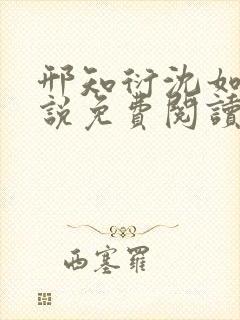 邢知衍沈如
説免費閱讀
西塞羅